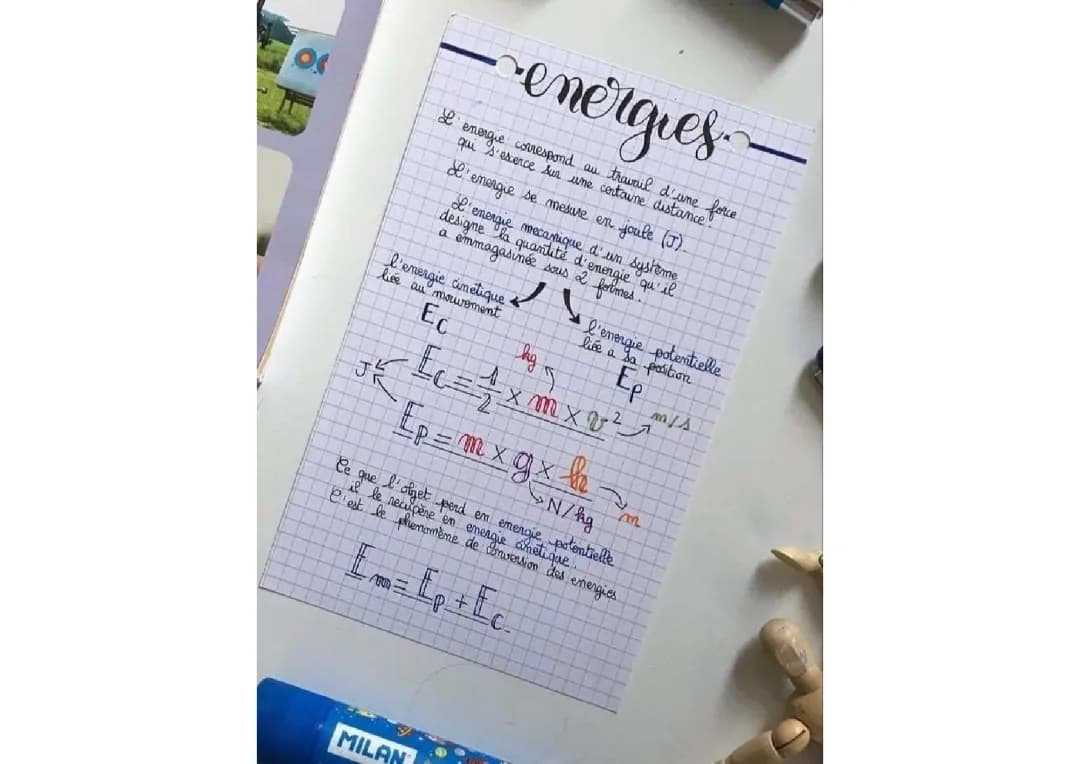 energies
L'energie correspond au travail d'une force
qui s'exerce sur une certaine distance.
L'energie se mesure en joule (J).
L'energie mecanique d'un système
designe la quantité d'energie qu'il
a emmagasinée sous 2 formes.
l'energie cinetique
liée au mouvement
Ec
l'energie potentielle
liée a sa position
Ep
kg
J
Ec = 1/2 × m × v² m/s
Ep = m × g × h
N/kg
m
Ce que l'objet perd en energie potentielle
il le recupère en energie cinetique.
C'est le phenomène de conversion des energies
Em = Ep + Ec
MILAN